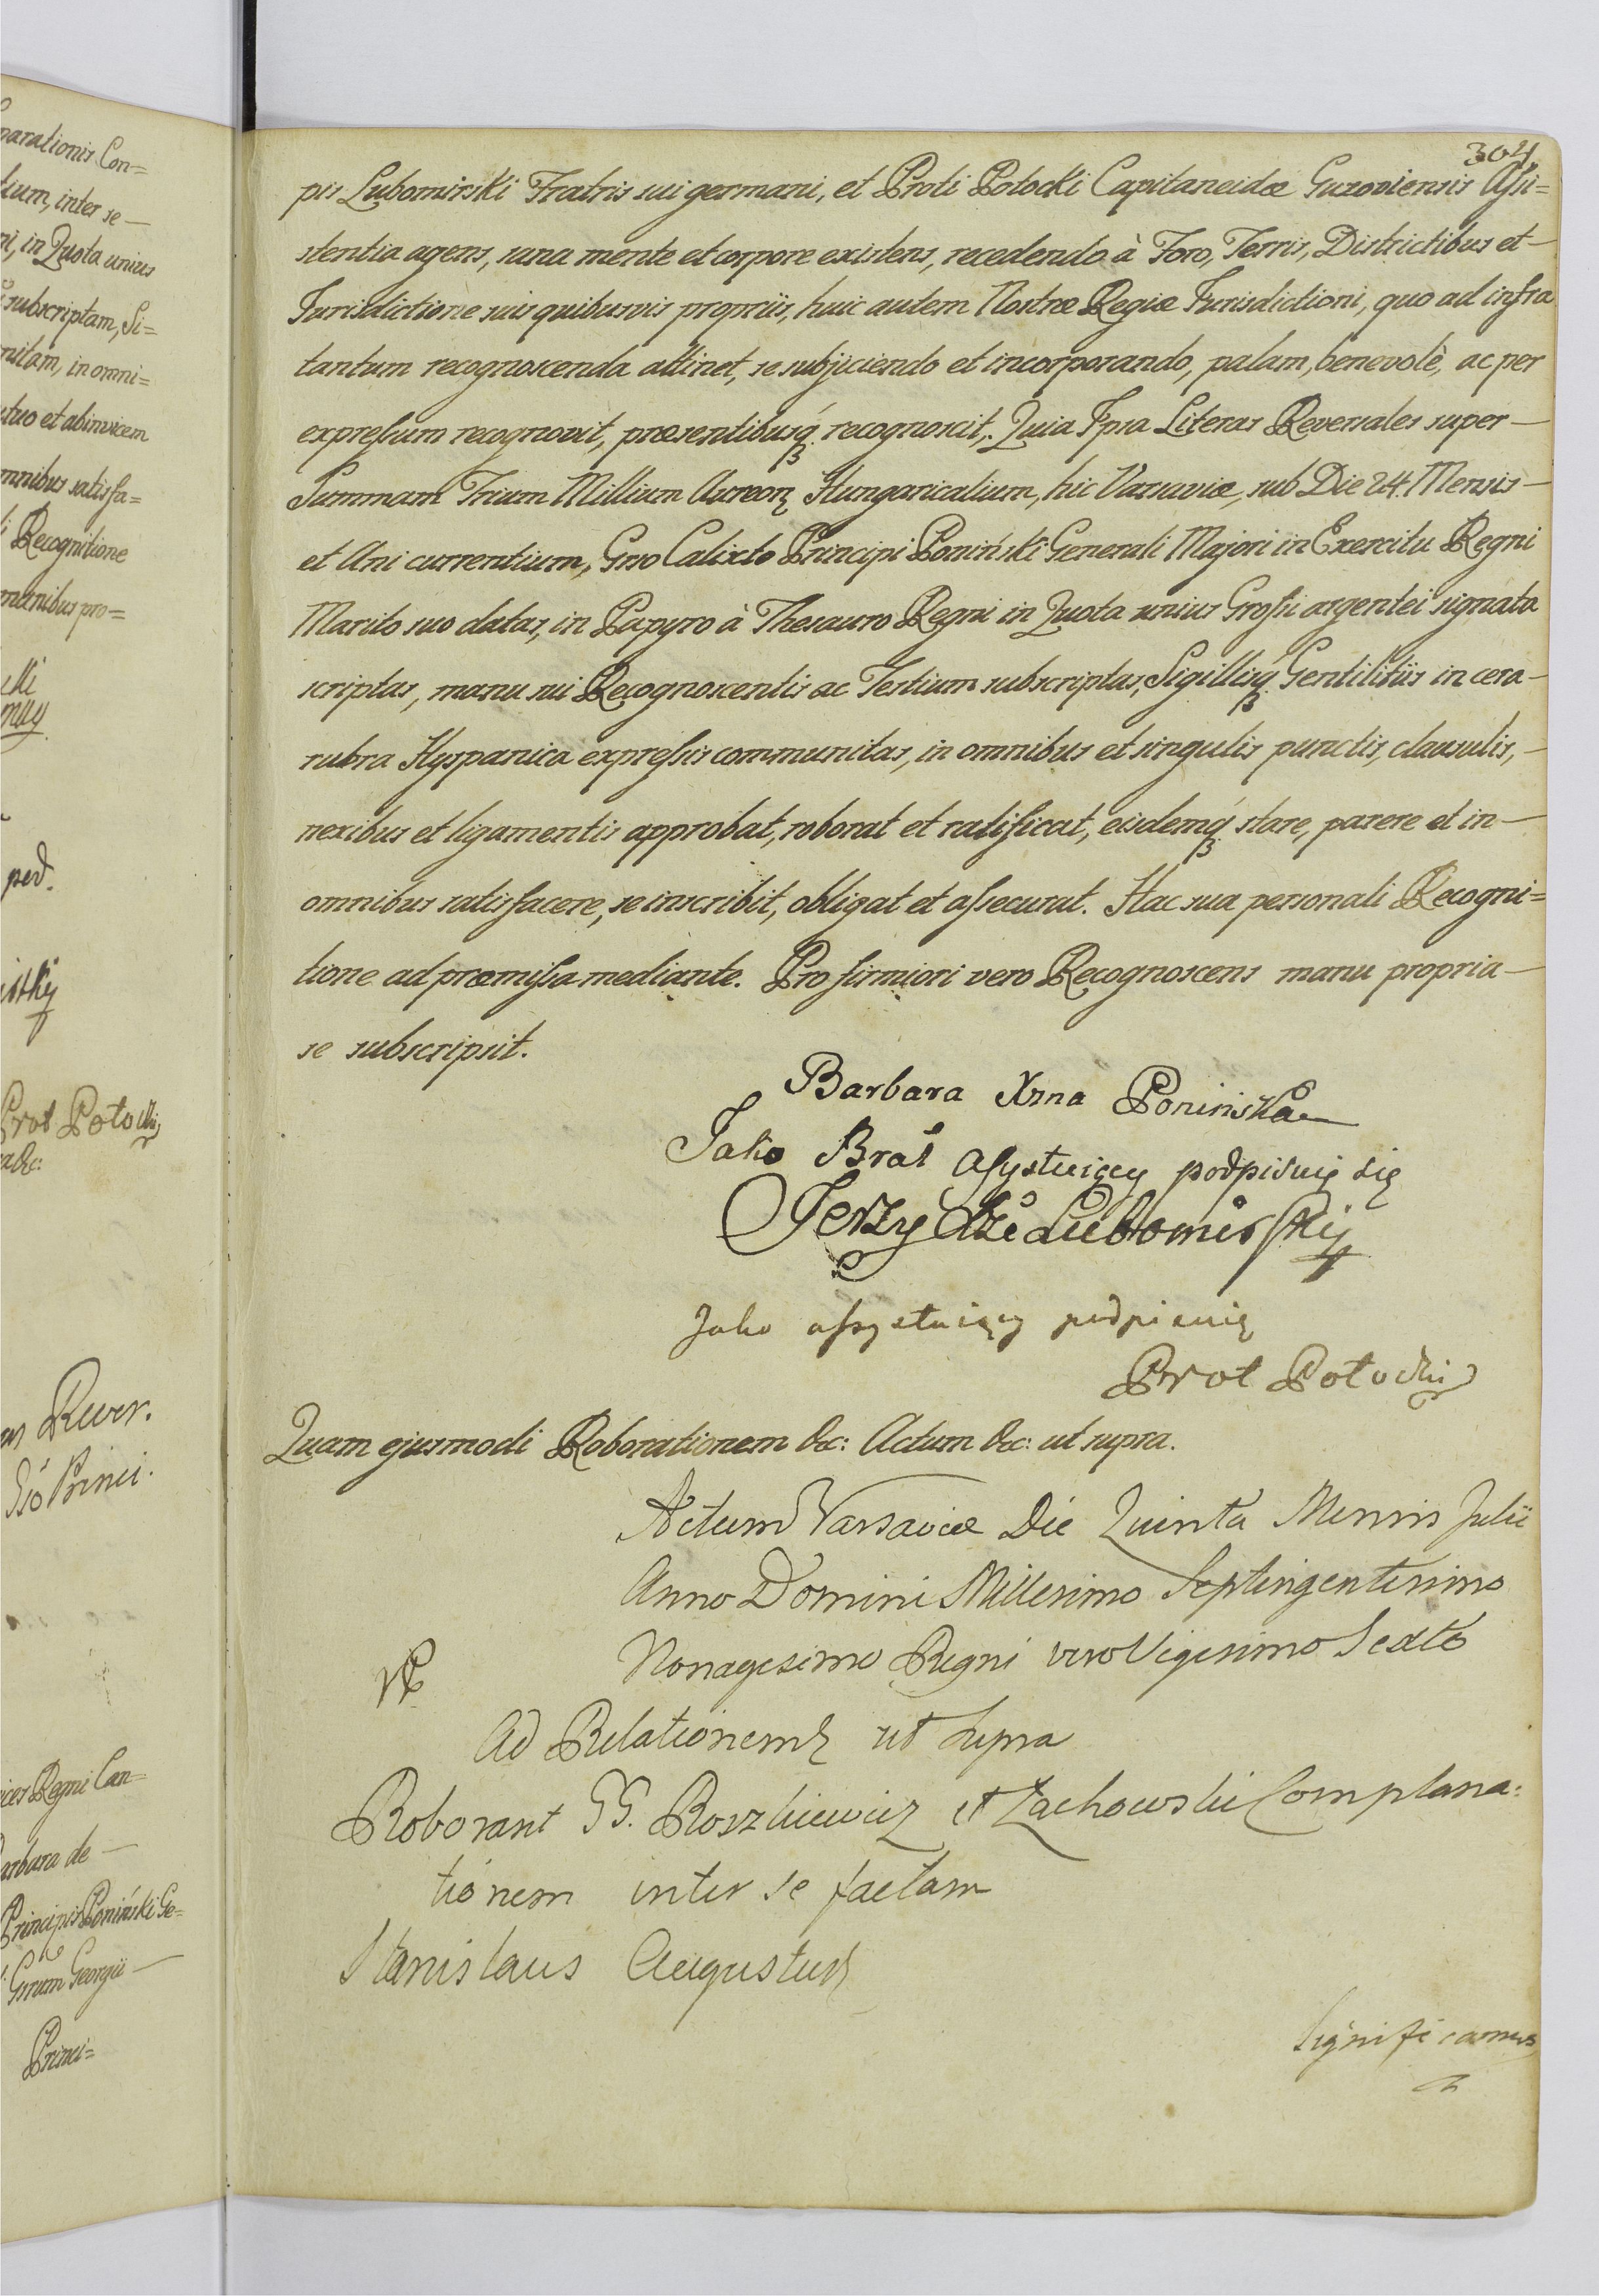 parationis Con=
tium, inter se —
ni, in Quota unius
subscriptam, Si=
nitam, in omni=
utuo et abinvicem
omnibus satisfa=
Recognitione
manibus pro=
Prot Potocki
Rever.
Princi.
ices Regni Can=
arbara de —
Principis Poniński Ge=
Grum Georgii —
Princi=
304
pis Lubomirski Fratris sui germani, et Proti Potocki Capitaneidæ Guzoviensis Assi=
stentia agens, sana mente et corpore existens, recedendo à Foro, Terris, Districtibus et —
Jurisdictione suis quibusvis propriis, huic autem Nostræ Regiæ Jurisdictioni, quo ad infra
tantum recognoscenda attinet, se subjiciendo et incorporando, palam, benevolè, ac per
expressum recognovit, præsentibusq́ꝫ recognoscit. Quia Ipsa Literas Reversales super —
Summam Trium Millium Aureorꝝ Hungaricalium, hic Varsaviæ, sub Die 24. Mensis —
et Ani currentium, Grso Calixto Principi Poniński Generali Majori in Exercitu Regni
Marito suo datas, in Papyro à Thesauro Regni in Quota unius Grossi argentei signata
scriptas, manu sui Recognoscentis ac Testium subscriptas, Sigillisq́ꝫ Gentilitiis in cera —
rubra Hyspanica expressis communitas, in omnibus et singulis punctis, clausulis, —
nexibus et ligamentis approbat, roborat et ratificat, eisdemq́ꝫ stare, parere et in —
omnibus satisfacere, se inscribit, obligat et assecurat. Hac sua personali Recogni=
tione ad præmissa mediante. Pro firmiori vero Recognoscens manu propria —
se subscripsit.
Barbara Xzna Ponińska
Jako Brat assystuiący podpisuię się
Jerzy Xże Lubomirskij
Jako assystuiący podpisuię
Prot Potocki
Quam ejusmodi Roborationem &c: Actum &c: ut supra.
Actum Varsaviæ Die Quinta Mensis Julii
Anno Domini Millesimo Septingentesimo
Nonagesimo Regni vero Vigesimo Sexto
Ad Relationem ut supra
Roborant GG. Roszkiewicz et Zachowski Complana:
tionem inter se factam
Stanislaus Augustus
Significamus